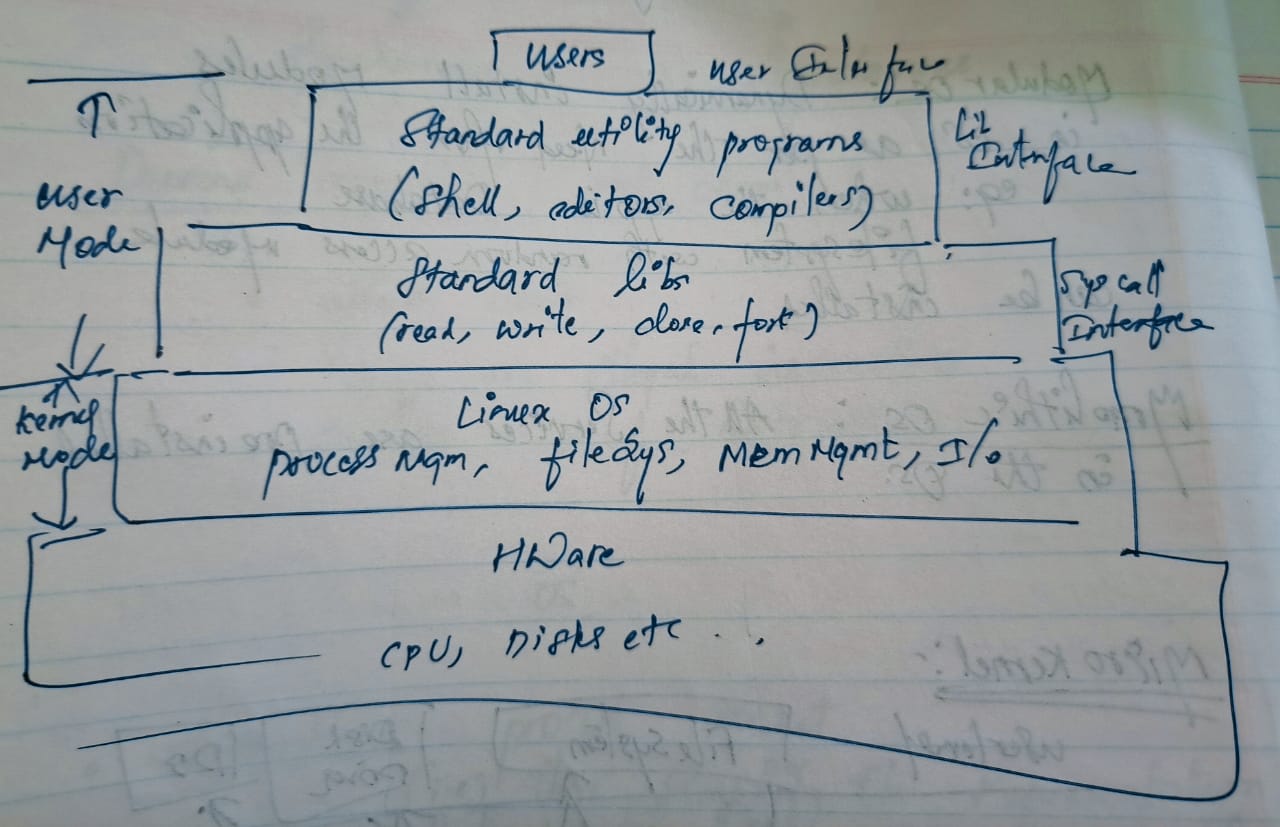 Users
User Interface
Standard utility programs
(shell, editors, compilers)
Lib
Interface
User
Mode
Standard libs
(read, write, close, fork)
Sys call
Interface
Kernel
Mode
Linux OS
Process Mgm, fileSys, Mem Mgmt, I/o
HWare
CPU, Disks etc . . .